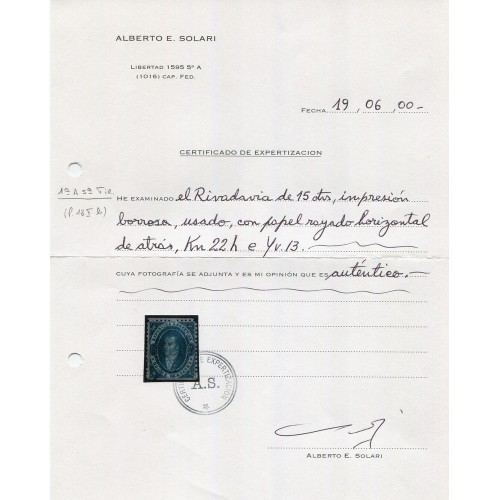 ALBERTO E. SOLARI
LIBERTAD 1595 5º A
(1016) CAP. FED.
FECHA 19, 06, 00-
CERTIFICADO DE EXPERTIZACION
1ª A 5ª Tir.
HE EXAMINADO el Rivadavia de 15 ctvs, impresión
borrosa, usado, con papel rayado horizontal
de atrás, Kn 22h e Yv. 13.
CUYA FOTOGRAFIA SE ADJUNTA Y ES MI OPINIÓN QUE ES auténtico.-
DE EXPERTIZACION
A.S.
ALBERTO E. SOLARI